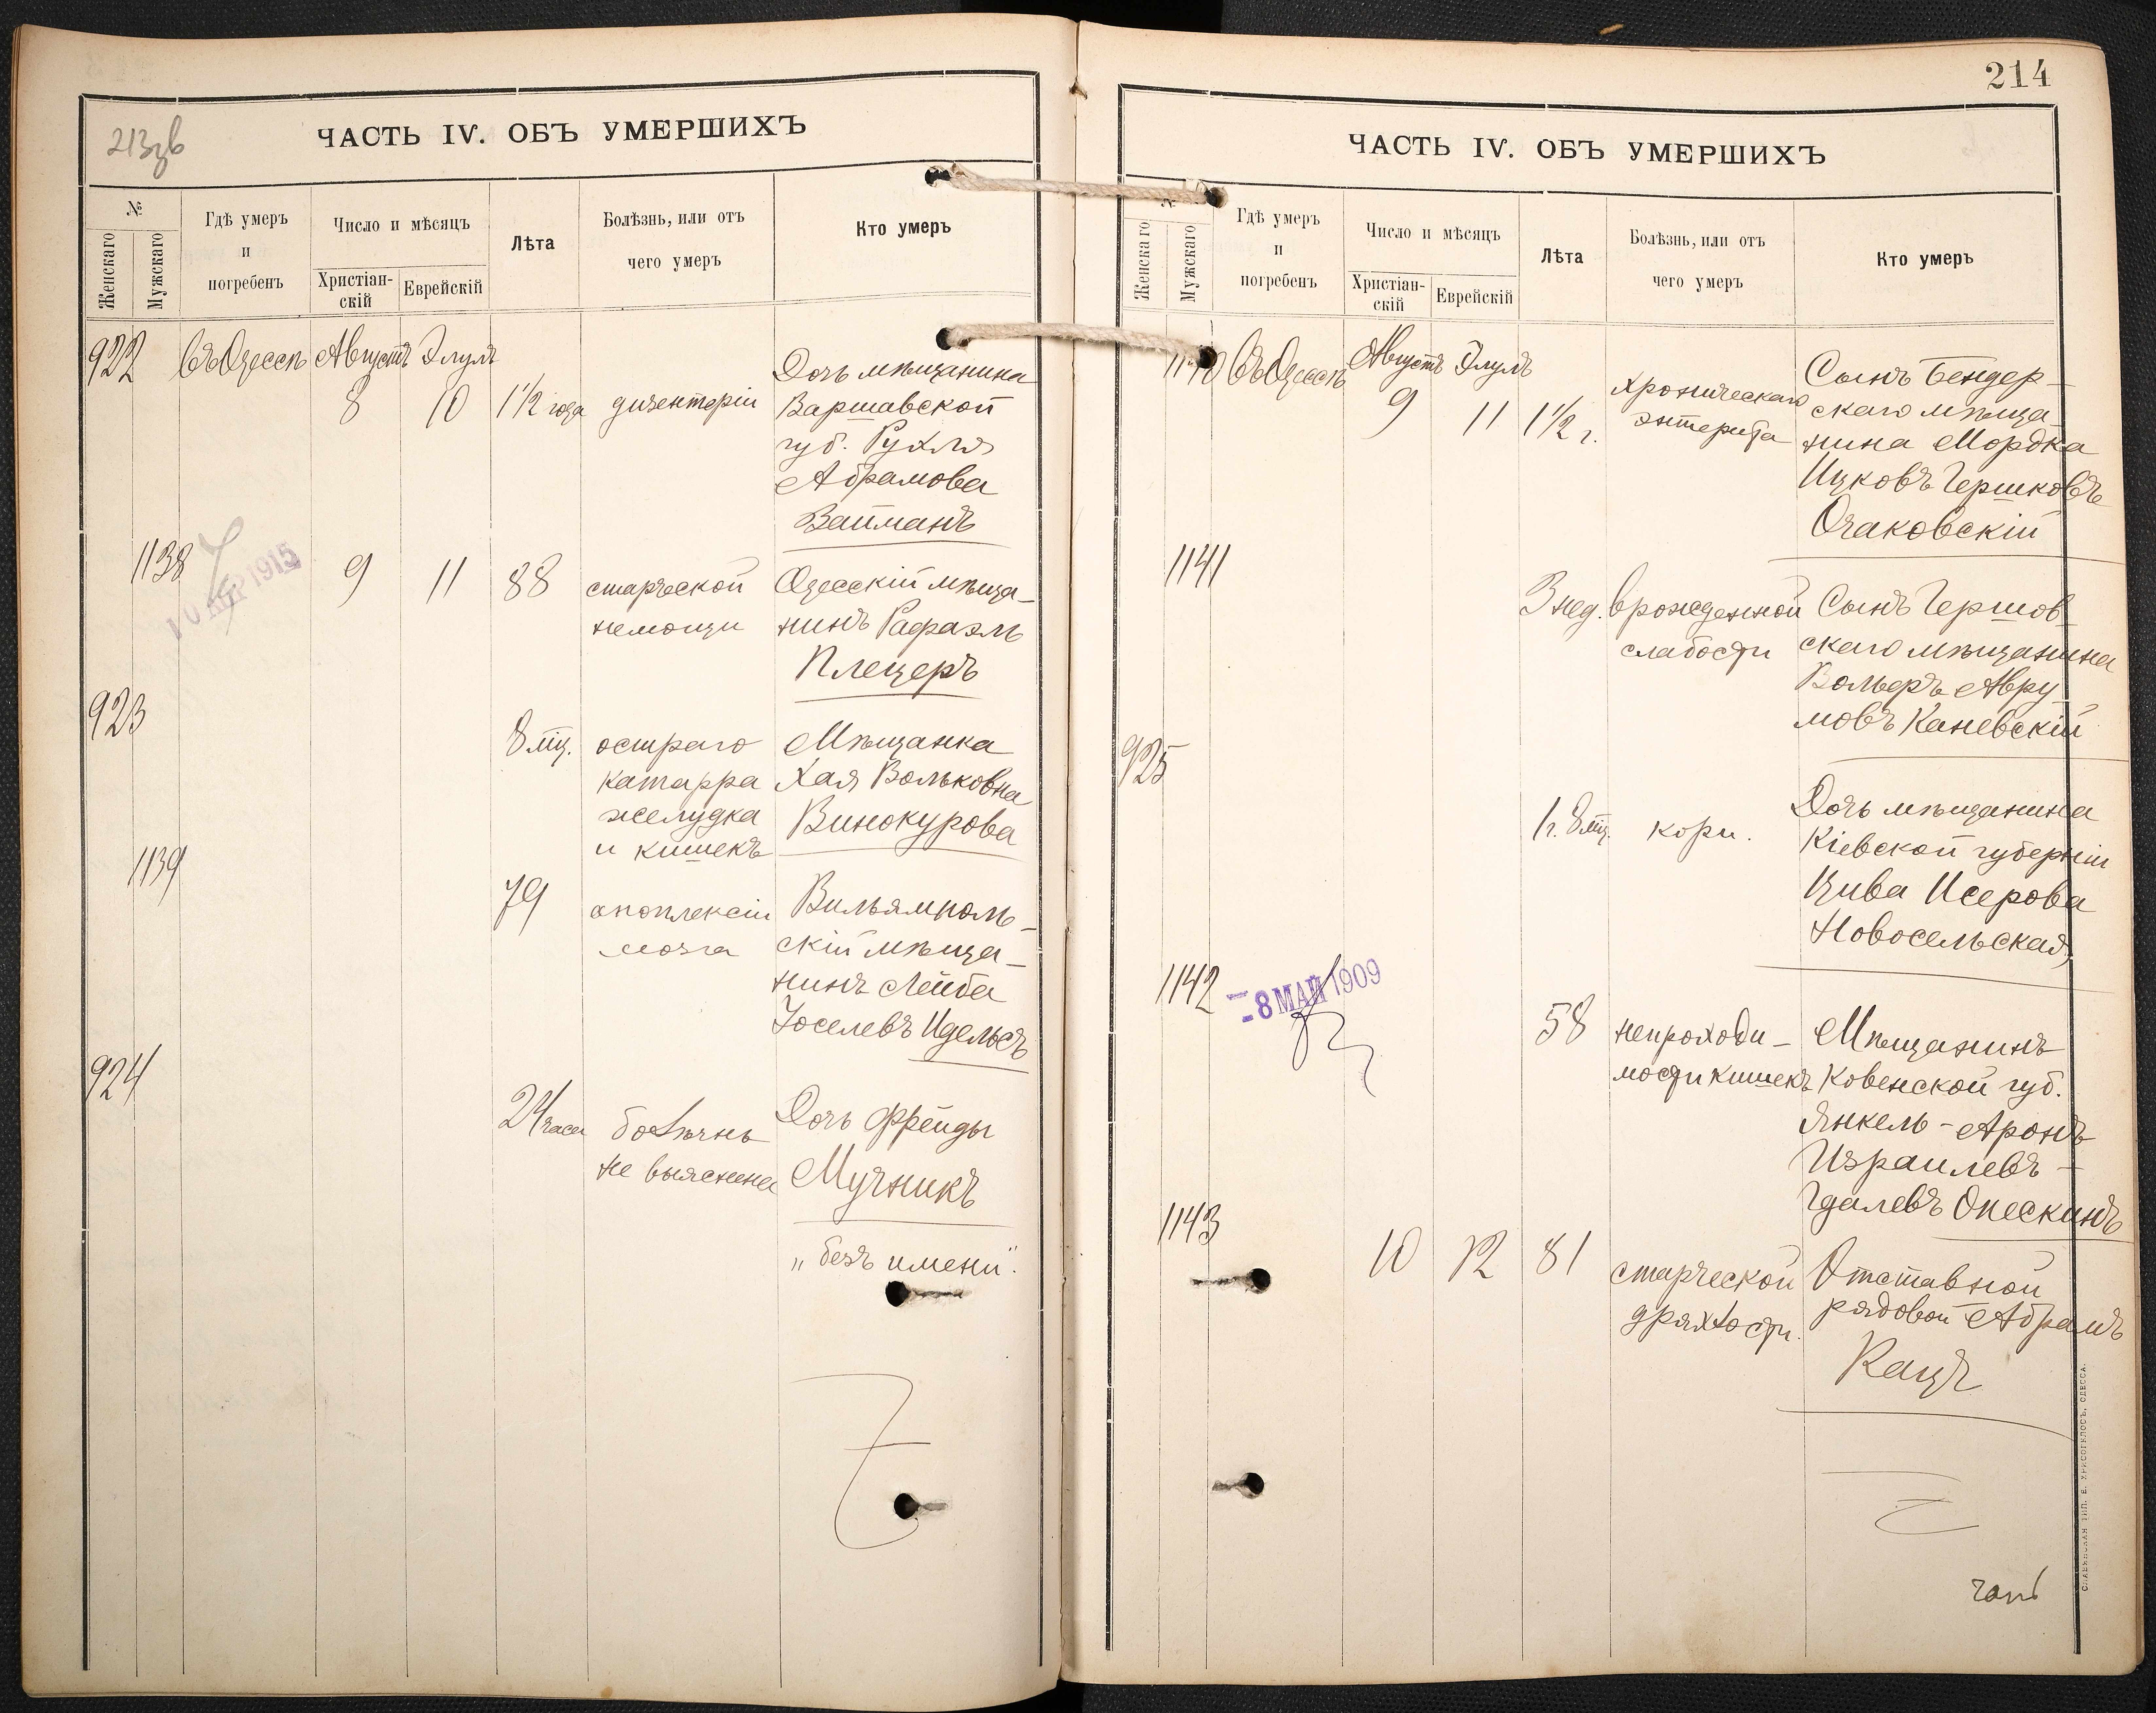 213зв
ЧАСТЬ IV. ОБЪ УМЕРШИХЪ
№
Женскаго
Мужскаго
Гдѣ умеръ
и
погребенъ
Число и мѣсяцъ
Христіан-
скій
Еврейскій
Лѣта
Болѣзнь, или отъ
чего умеръ
Кто умеръ
922 Въ Одессѣ Августъ Элулъ
8 10 1 1/2 года дизентеріи
Дочь мѣщанина
Варшавской
губ. Рухля
Абрамова
Вайманъ
1138
10 АПР 1915
9 11 88 старческой
немощи
Одесскій мѣща-
нинъ Рафаэль
Плецеръ
923
8 мц. остраго
катарра
желудка
и кишекъ
Мѣщанка
Хая Вольковна
Винокурова
1139
79 апоплексіи
мозга
Вильямполь-
скій мѣща-
нинъ Лейба
Іоселевъ Идельсъ
924
24 часа болѣзнь
не выяснена
Дочь Фрейды
Мучникъ
„безъ имени".
214
ЧАСТЬ IV. ОБЪ УМЕРШИХЪ
Женскаго
Мужскаго
Гдѣ умеръ
и
погребенъ
Число и мѣсяцъ
Христіан-
скій
Еврейскій
Лѣта
Болѣзнь, или отъ
чего умеръ
Кто умеръ
1140 Въ Одессѣ Августъ Элулъ
9 11 1 1/2 г. хроническаго
энтерита
Сынъ Бендер-
скаго мѣща-
нина Мордка
Ицковъ Гершковъ
Очаковскій
1141
3 нед. врожденной
слабости
Сынъ Гершов-
скаго мѣщанина
Вольфъ Авру-
мовъ Каневскій
925
1 г. 8 мц. кори.
Дочь мѣщанина
Кіевской губерніи
Цива Исерова
Новосельская
1142
-8 МАЙ 1909
58 непроходи-
мости кишекъ
Мѣщанинъ
Ковенской губ.
Янкель-Аронъ
Израилевъ-
Гдалевъ Опескинъ
1143
10 12 81 старческой
дряхлости.
Отставной
рядовой Абрамъ
Кацъ
СЛАВЯНСКАЯ ТИП. Е. ХРИСОГЕЛОСЪ, ОДЕССА.